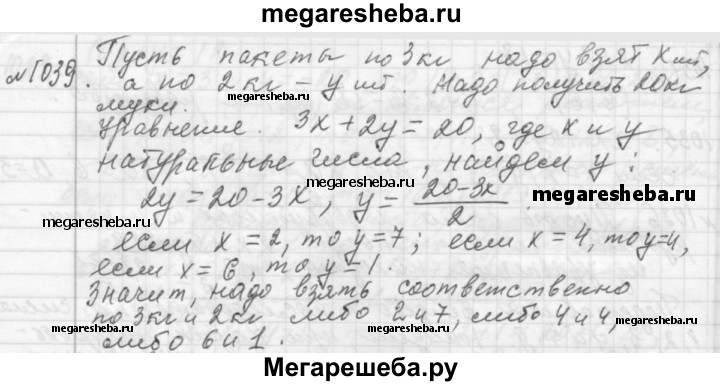 megaresheba.ru
№1039. Пусть пакеты по 3 кг надо взят x шт,
а по 2 кг – y шт. Надо получить 20 кг
муки.
megaresheba.ru
megaresheba.ru
Уравнение. 3x + 2y = 20, где x и y
натуральные числа, найдем y:
megaresheba.ru
2y = 20 - 3x, y = (20 - 3x)/2.
megaresheba.ru
megaresheba.ru
если x = 2, то y = 7; если x = 4, то y = 4,
если x = 6, то y = 1.
megaresheba.ru
Значит, надо взять соответственно
по 3 кг и 2 кг либо 2 и 7, либо 4 и 4,
megaresheba.ru
megaresheba.ru
либо 6 и 1.
Мегарешеба.ру